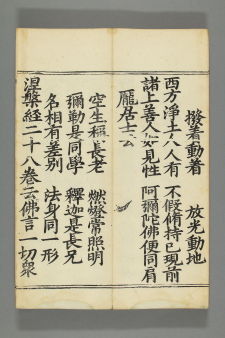 撥着動着　放光動地
西方淨土人人有　不假脩持已現前
諸上善人如見性　阿彌陀佛便同肩
龐居士云
空生稱長老　燃燈常照明
彌勒是同學　釋迦是長兄
名相有差別　法身同一形
涅槃經二十八卷云佛言一切衆